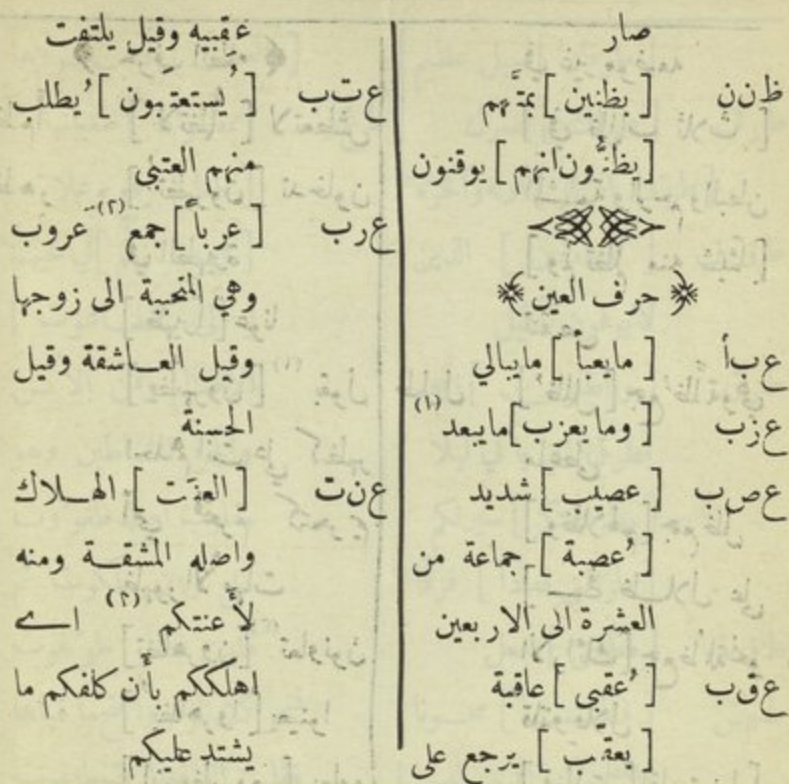 صار
ظ ن ن [ بظنين ] بمتَّهم
[يظنُّون انهم ] يوقنون
﴿ حرف العين ﴾
ع ب أ [ مايعبأ ] مايبالي
ع ز ب [ وما يعزب ] مايبعد (١)
ع ص ب [ عصيب ] شديد
[ عُصبة ] جماعة من
العشرة الى الاربعين
ع ق ب [ عُقبى ] عاقبة
[ يعقّب ] يرجع على
عقبيه وقيل يلتفت
ع ت ب [ يُستعتَبون ] يُطلب
منهم العتبى
ع ر ب [ عرباً ] جمع (٢) عروب
وهي المتحببة الى زوجها
وقيل العـاشقة وقيل
الحسنة
ع ن ت [ العنَت ] الهـلاك
واصله المشقـة ومنه
لأَعنتكم (٣) اى
اهلككم بأن كلفكم ما
يشتد عليكم